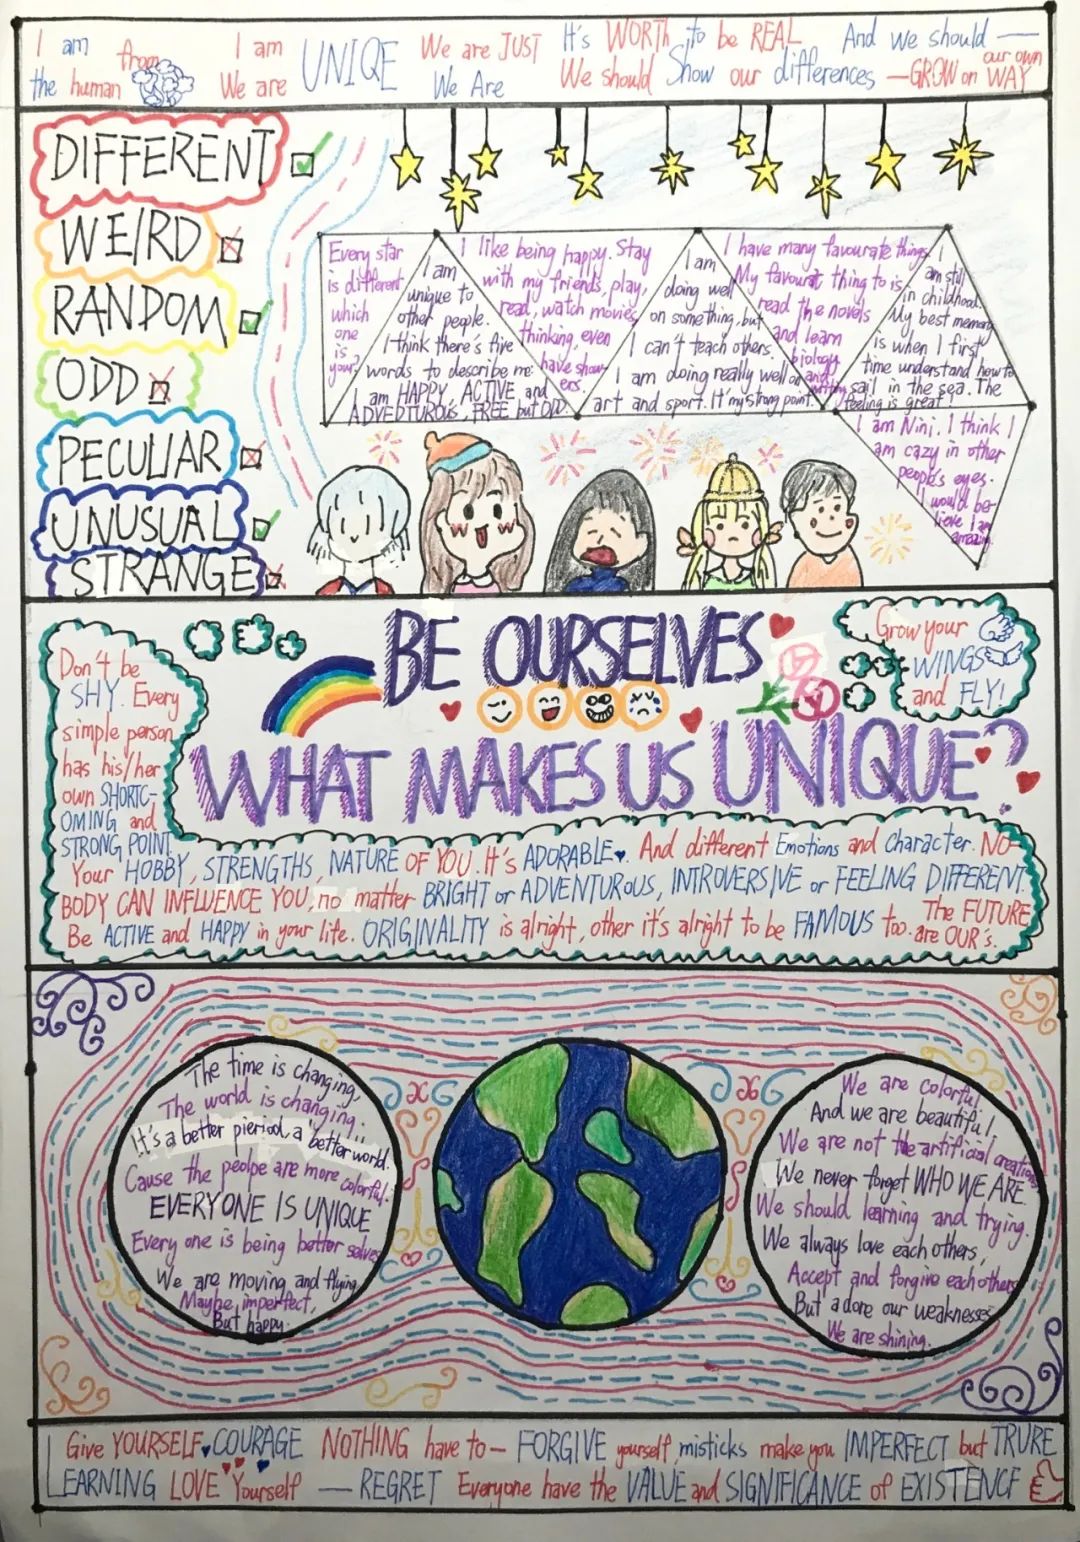 I am from
the human
I am
We are
UNIQE
We are JUST
We Are
It's WORTH to be REAL
We should Show our differences
And we should —
—GROW on our own WAY
DIFFERENT
WEIRD
RANDOM
ODD
PECULIAR
UNUSUAL
STRANGE
Every star
is different
which
one
is
your?
I am
unique to
other people.
I think there's five
words to describe me:
I am HAPPY, ACTIVE and
ADVEDTUROUS, FREE but ODD.
I like being happy. Stay
with my friends, play,
read, watch movies,
thinking, even
have show-
ers.
I am
doing well
on something, but
I can't teach others.
I am doing really well on
art and sport. It' my strong point.
I have many favourate things.
My favourat thing to is
read the novels
and learn
biology
and
writing
I
am still
in childhood.
My best memory
is when I first
time understand how to
sail in the sea. The
feeling is great!
I am Nini. I think I
am cazy in other
people's eyes.
I would be-
lieve I am
amazing.
BE OURSELVES
WHAT MAKES US UNIQUE?
Grow your
WINGS
and FLY!
Don't be
SHY. Every
simple person
has his/her
own SHORTC-
OMING and
STRONG POINT.
Your HOBBY, STRENGTHS, NATURE OF YOU. It's ADORABLE. And different Emotions and Character. NO-
BODY CAN INFLUENCE YOU, no matter BRIGHT or ADVENTUROUS, INTROVERSIVE or FEELING DIFFERENT.
Be ACTIVE and HAPPY in your life. ORIGINALITY is alright, other it's alright to be FAMOUS too. The FUTURE
are OUR's.
The time is changing,
The world is changing.
It's a better pieriod, a better world.
Cause the peolpe are more colorful.
EVERYONE IS UNIQUE
Every one is being better selves
We are moving and flying
Maybe imperfect,
But happy.
We are colorful
And we are beautiful,
We are not the artificial creations
We never forget WHO WE ARE
We should learning and trying.
We always love each others,
Accept and forgive each others
But adore our weaknesses
We are shining.
Give YOURSELF COURAGE
LEARNING LOVE Yourself
NOTHING have to—
— REGRET
FORGIVE yourself, misticks make you IMPERFECT but TRURE
Everyone have the VALUE and SIGNIFICANCE of EXISTENCE